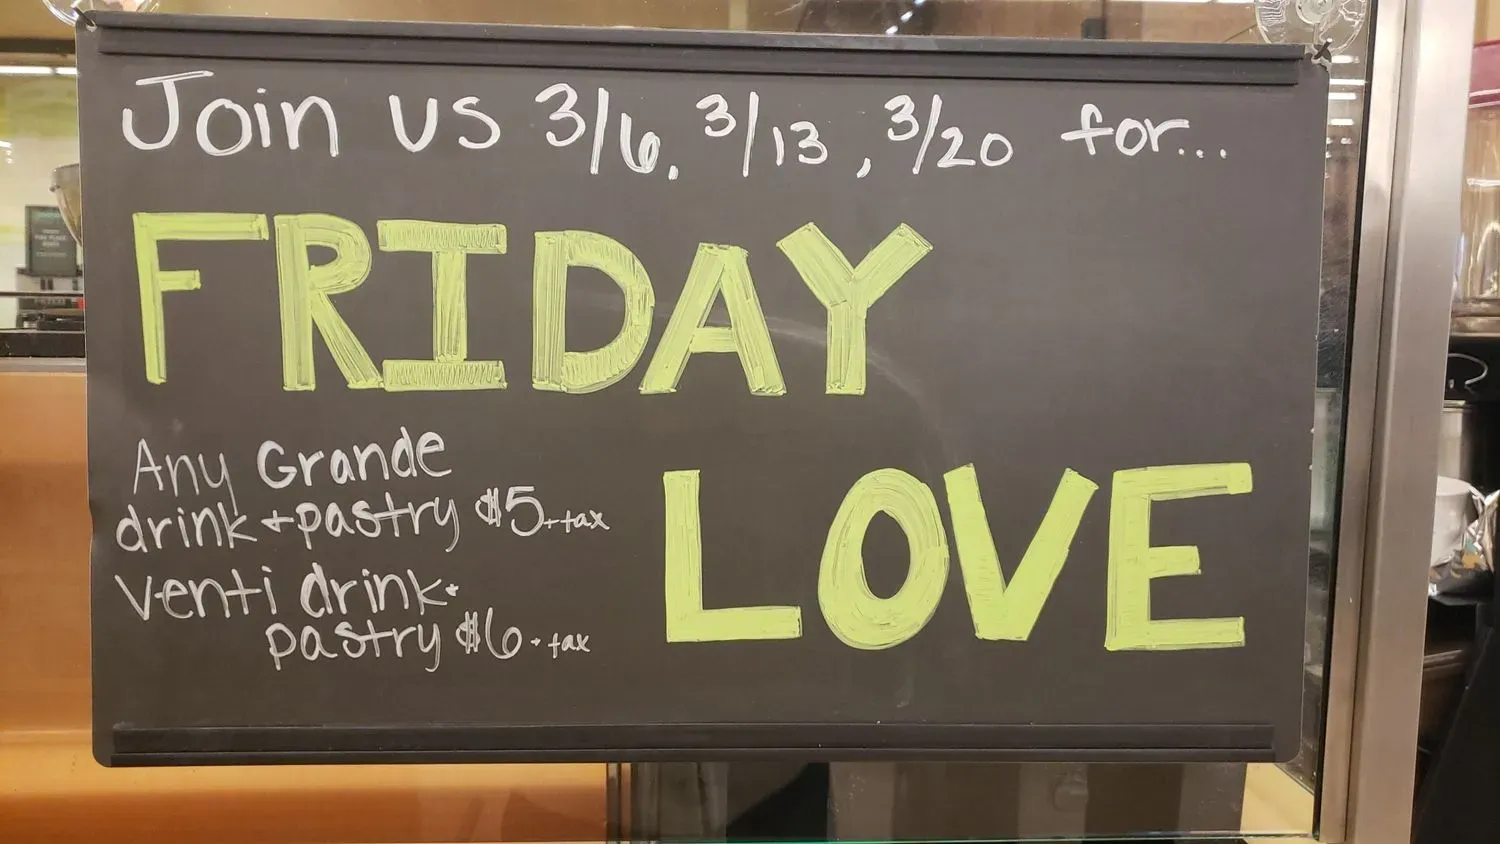 Join us 3/6, 3/13, 3/20 for...
FRIDAY
LOVE
Any Grande
drink + pastry $5 + tax
Venti drink +
pastry $6 + tax